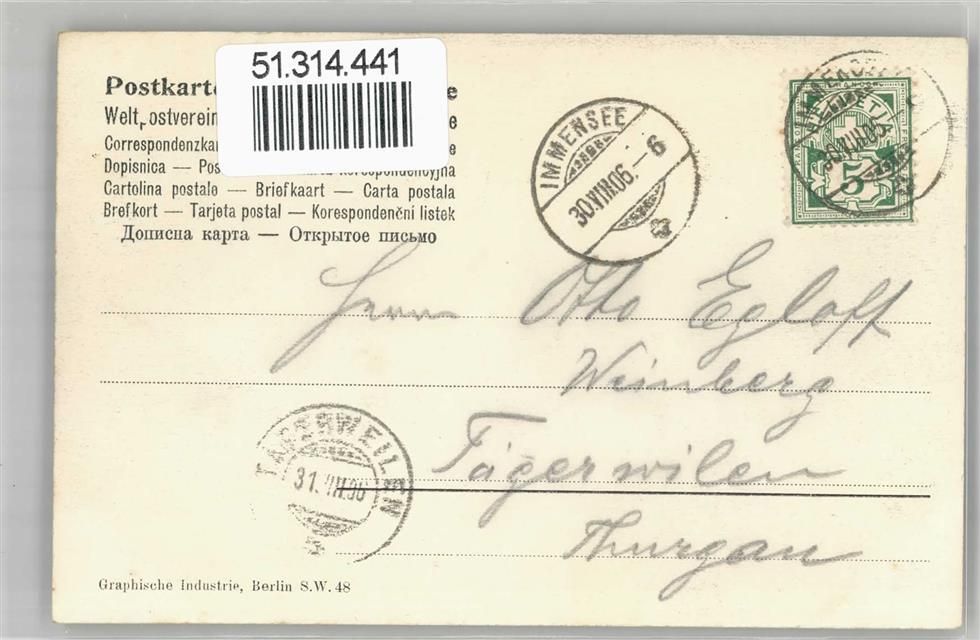 51.314.441
Postkarte
Welt ostverein
Correspondenzka
Dopisnica — Pos korespondencyjna
Cartolina postale — Briefkaart — Carta postala
Brefkort — Tarjeta postal — Korespondenční listek
Дописна карта — Открытое письмо
IMMENSEE
30.VIII.06.–6
IMMENSEE
HELVETIA
5
Herrn Otto Egloff
Weinberg
Tägerwilen
Thurgau
TÄGERWEILEN
31.VIII.06
Graphische Industrie, Berlin S.W. 48